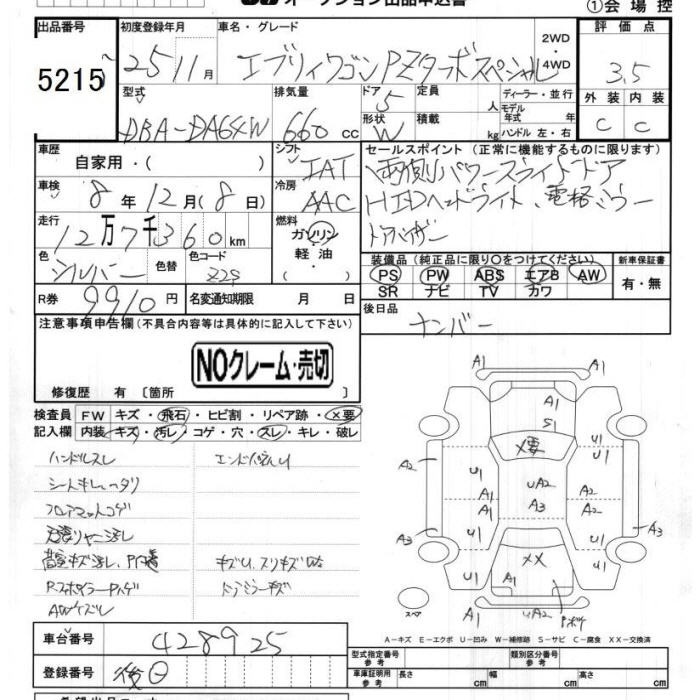 オークション出品申込書
①会場控
出品番号 初度登録年月 車名・グレード 2WD・4WD 評価点
5215 25 11月 エブリィワゴンPZターボスペシャル 3.5
型式 排気量 ドア 5 定員 人 ディーラー・並行 外装 内装
DBA-DA64W 660cc 形状 W 積載 kg モデル年式 年式 ハンドル 左・右 C C
車歴 自家用・( ) シフト IAT セールスポイント (正常に機能するものに限ります)
車検 8年12月(8日) 冷房 AAC 両側パワースライドドア
HIDヘッドライト、電格ミラー
走行 12万7千360km 燃料 ガソリン・軽油・( ) ドアバイザー
色 シルバー 色替 色コード Z2S 装備品 (純正品に限り○をつけてください) 新車保証書
PS PW ABS エアB AW 有・無
SR ナビ TV カワ
R券 9910円 名変通知期限 月 日 後日品
ナンバー
注意事項申告欄(不具合内容等は具体的に記入して下さい)
NOクレーム・売切
修復歴 有〔箇所 〕
検査員 FW キズ・飛石・ヒビ割・リペア跡・×要
記入欄 内装 キズ・汚レ・コゲ・穴・スレ・キレ・破レ
ハンドルスレ
フロアマットコゲ
AWキズU
ドアミラーキズ
A1
A1 A1
S1
×要
U1 U1
U1
A2 U1 UA2 A2
A1 A3 A1
A3 U1 U1 A3
××
U1 A1 A1 U1
スペア UA2
A-キズ E-エクボ U-凹み W-補修跡 S-サビ C-腐食 XX-交換済
車台番号 428925 型式指定番号 参考 類別区分番号 参考
登録番号 後日 車庫証明用 参考 長さ cm 幅 cm 高さ cm